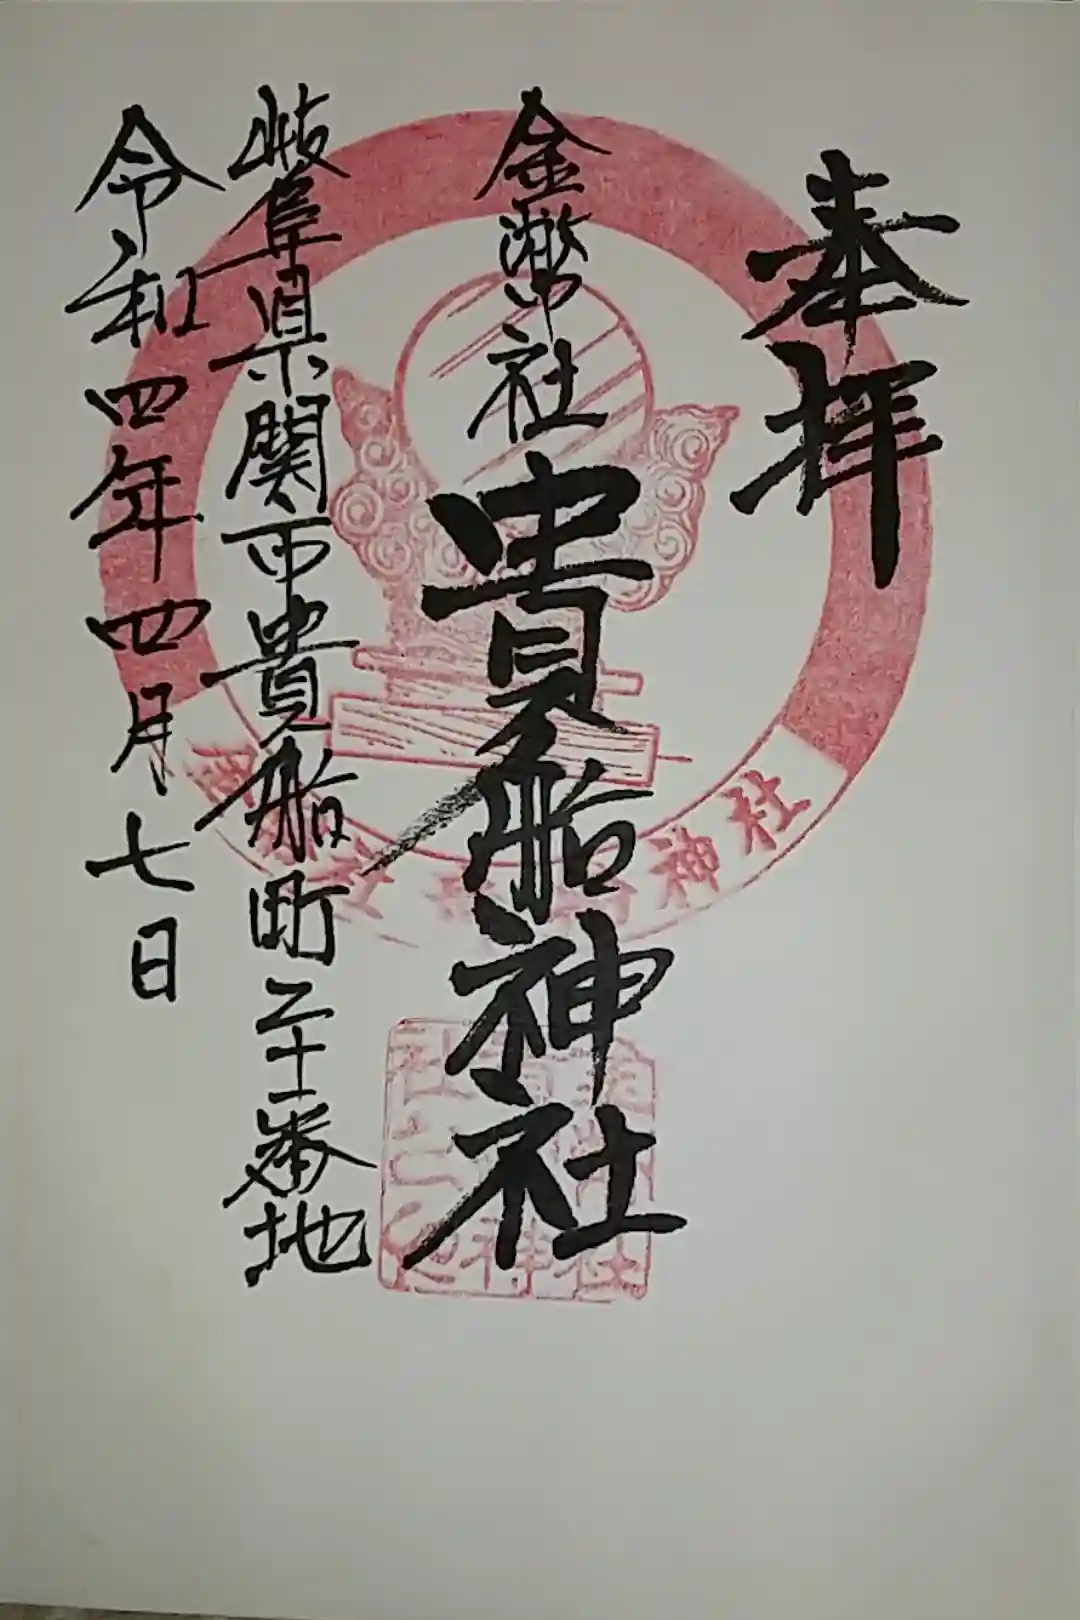 奉拝
金幣社 貴船神社
岐阜県関市貴船町二十番地
令和四年四月七日
神社